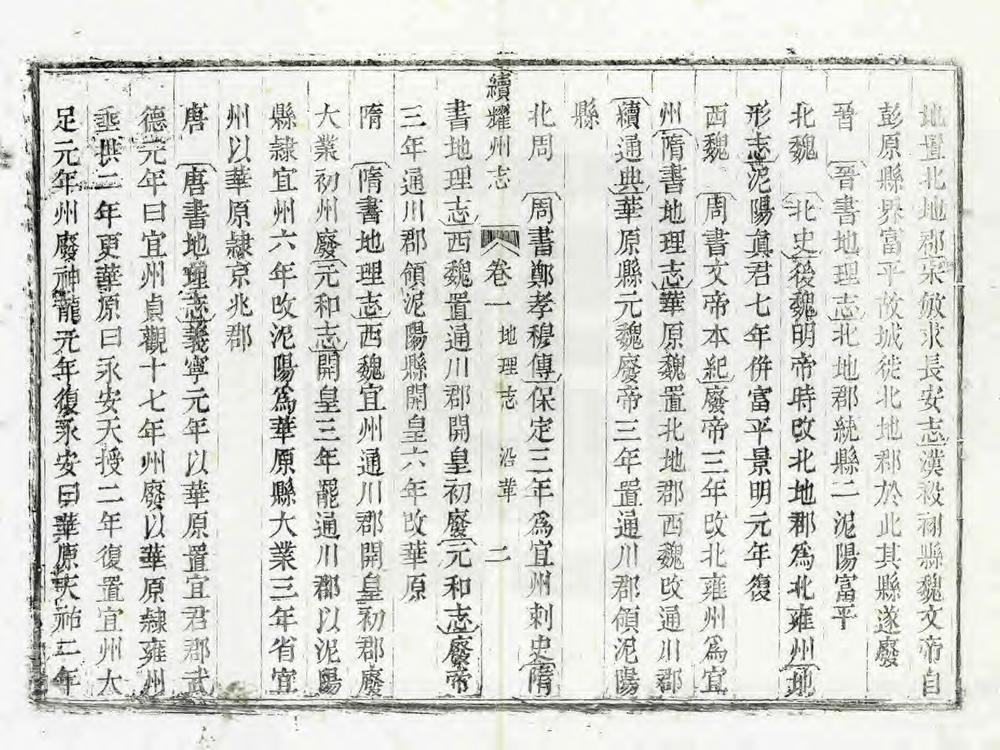 地置北地郡宋敏求長安志漢祋祤縣魏文帝自
彭原縣界富平故城徙北地郡於此其縣遂廢
晉　晉書地理志北地郡統縣二泥陽富平
北魏　北史後魏明帝時改北地郡為北雍州地
形志泥陽真君七年併富平景明元年復
西魏　周書文帝本紀廢帝三年改北雍州為宜
州隋書地理志華原魏置北地郡西魏改通川郡
續通典華原縣元魏廢帝三年置通川郡領泥陽
縣
續耀州志　卷一　地理志　沿革　二
北周　周書鄭孝穆傳保定三年為宜州刺史隋
書地理志西魏置通川郡開皇初廢元和志廢帝
三年通川郡領泥陽縣開皇六年改華原
隋　隋書地理志西魏宜州通川郡開皇初郡廢
大業初州廢元和志開皇三年罷通川郡以泥陽
縣隸宜州六年改泥陽為華原縣大業三年省宜
州以華原隸京兆郡
唐　唐書地理志義寧元年以華原置宜君郡武
德元年曰宜州貞觀十七年州廢以華原隸雍州
垂拱二年更華原曰永安天授二年復置宜州大
足元年州廢神龍元年復永安曰華原天祐二年